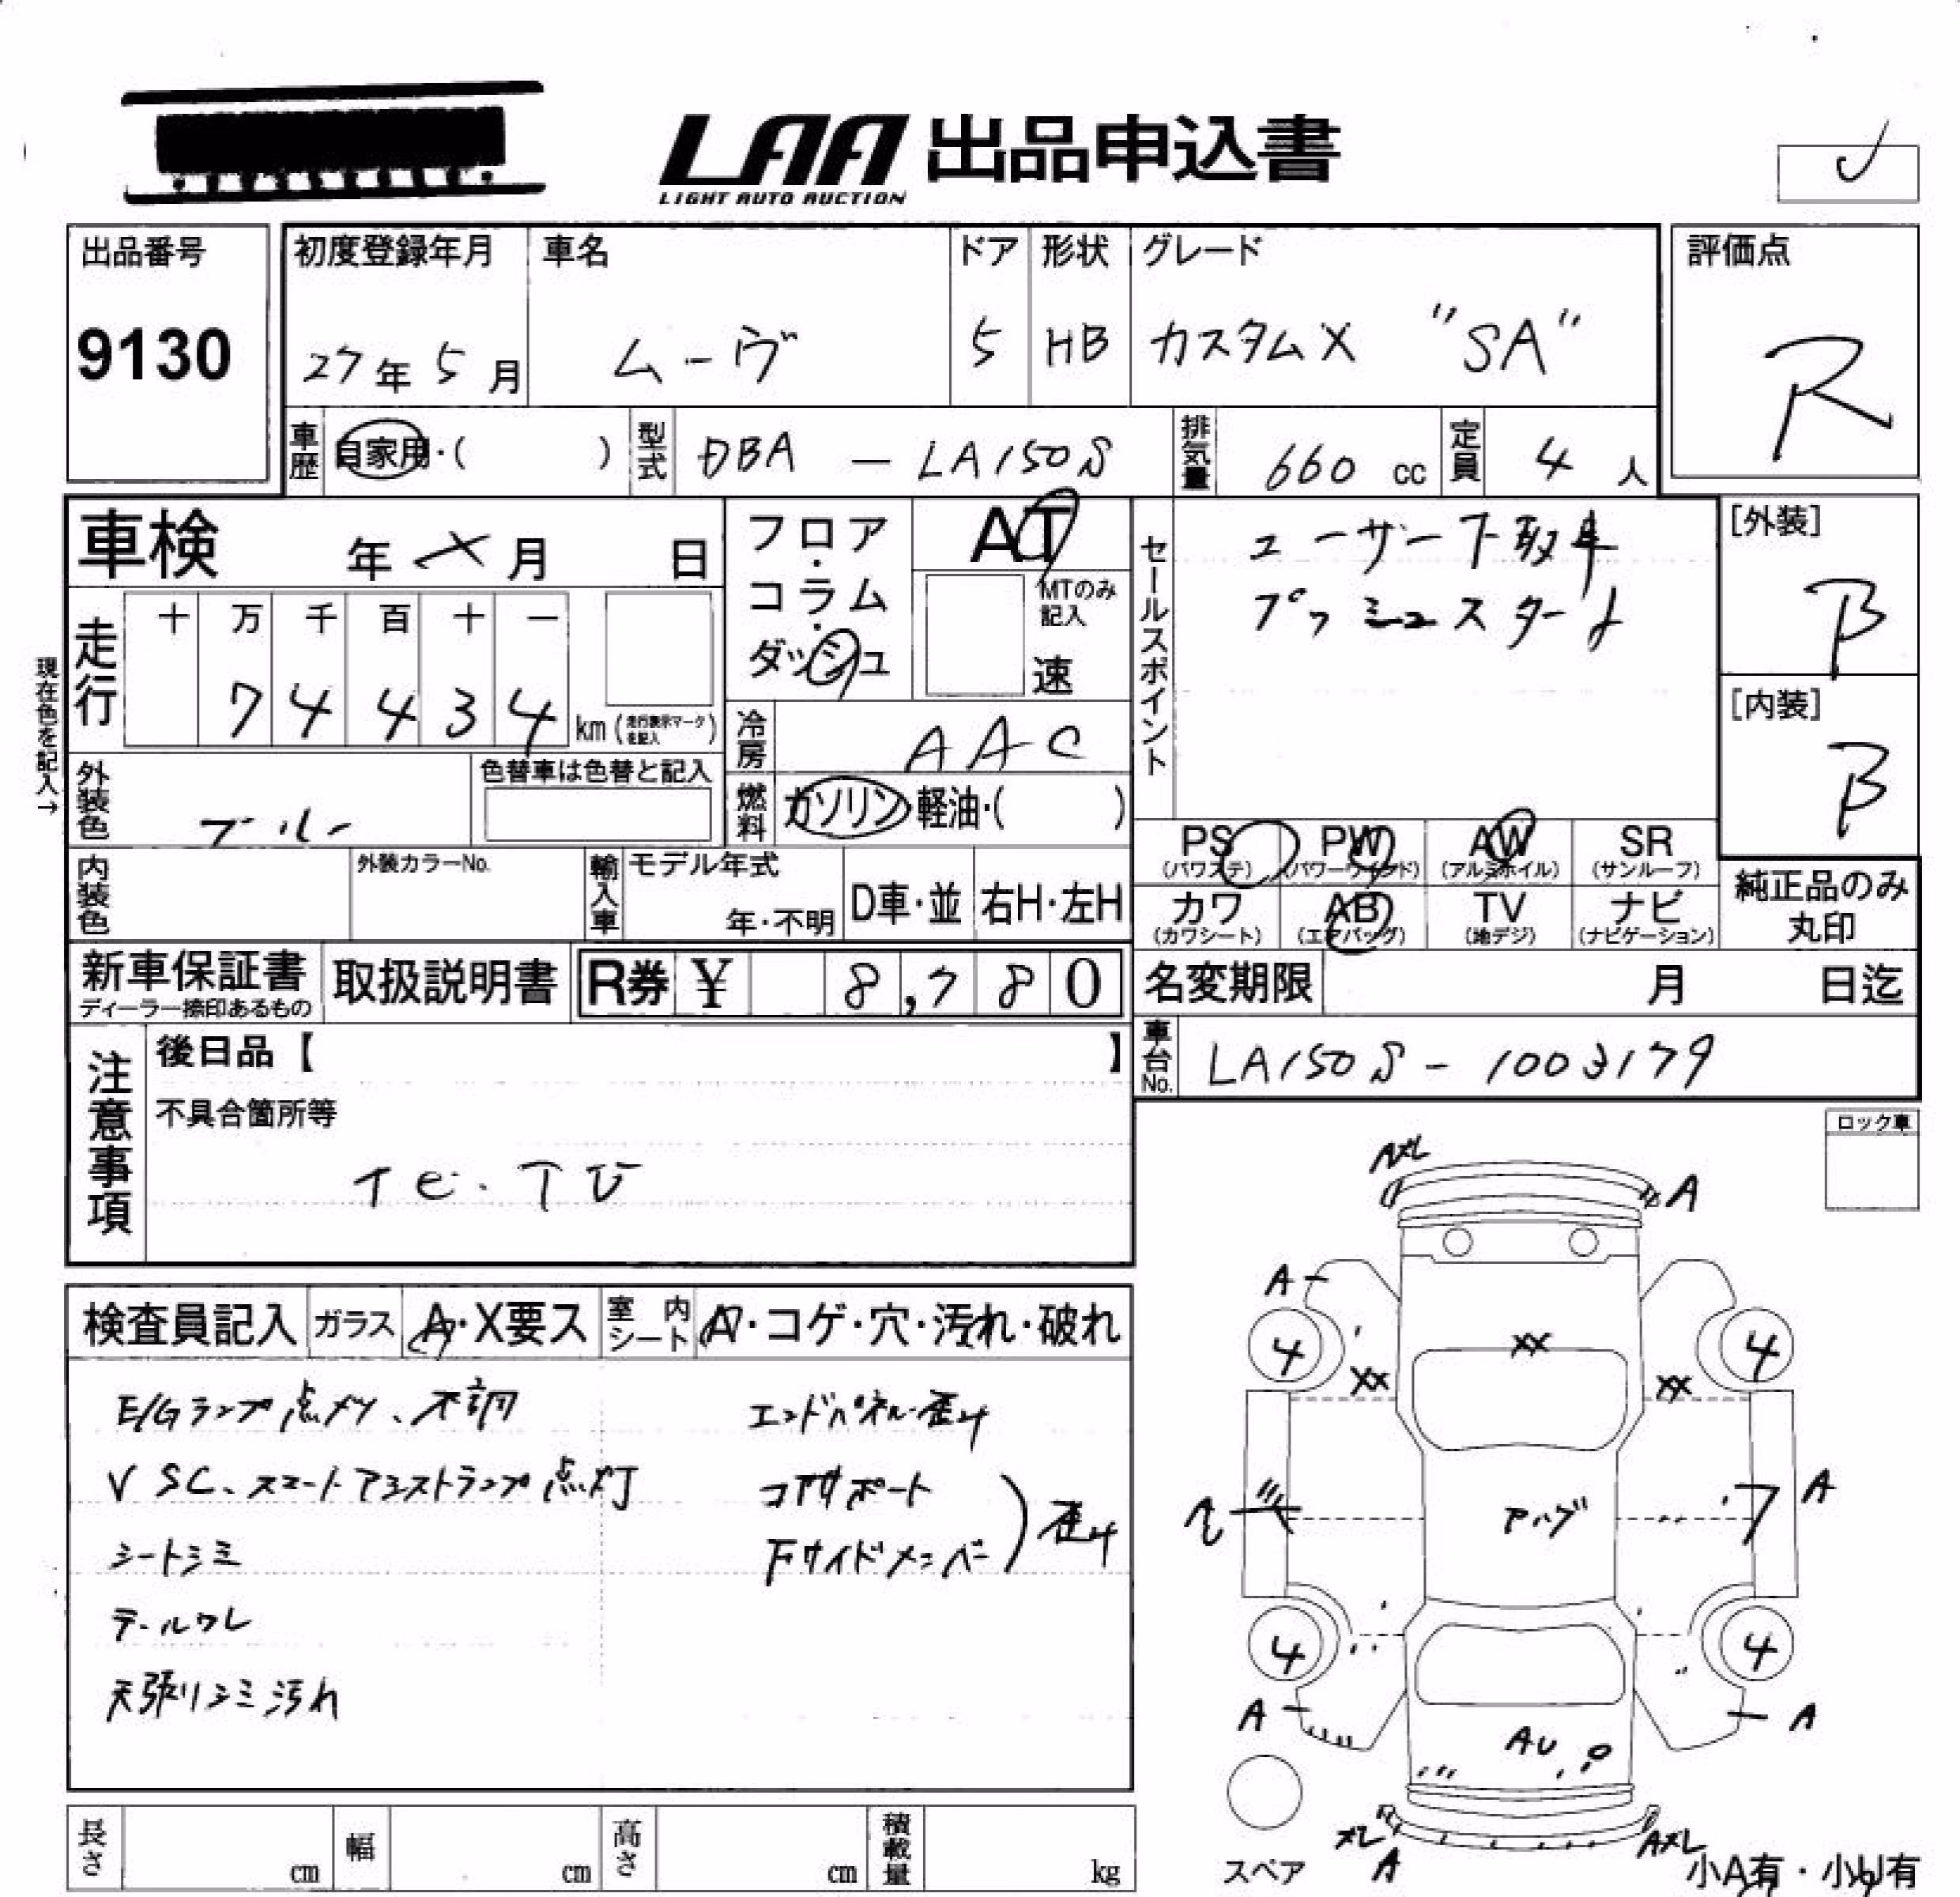 LAA 出品申込書
LIGHT AUTO AUCTION
出品番号 初度登録年月 車名 ドア 形状 グレード 評価点
9130 27年 5月 ムーヴ 5 HB カスタムX "SA" R
車歴 自家用・( ) 型式 DBA - LA150S 排気量 660 cc 定員 4 人
車検 年 X 月 日 フロア・コラム・ダッシュ AT
MTのみ記入 速
セールスポイント ユーザー下取車
プッシュスタート
[外装] B
[内装] B
現在色を記入→
走行 十 万 千 百 十 一
7 4 4 3 4 km (走行表示マークを記入)
冷房 AAC
外装色 ブルー 色替車は色替と記入
燃料 ガソリン・軽油・( )
PS (パワステ) PW (パワーウインド) AW (アルミホイル) SR (サンルーフ)
カワ (カワシート) AB (エアバッグ) TV (地デジ) ナビ (ナビゲーション)
純正品のみ丸印
内装色 外装カラーNo. 輸入車 モデル年式 年・不明 D車・並 右H・左H
新車保証書 ディーラー捺印あるもの 取扱説明書 R券 ¥ 8,780 名変期限 月 日迄
車台No. LA150S - 1003179
注意事項 後日品【 】
不具合箇所等
ロック車
検査員記入 ガラス A・X要ス 室内シート A・コゲ・穴・汚れ・破れ
E/Gランプ点メツ、不調
VSC、スマートアシストランプ点灯
シートシミ
テールワレ
天張リシミ汚れ
エンドパネル歪ミ
コアサポート
Fサイドメンバー
歪ミ
A
A
XX
XX XX
4 4
A
4 4
A A
AU
A
スペア
小A有・小U有
長さ cm 幅 cm 高さ cm 積載量 kg